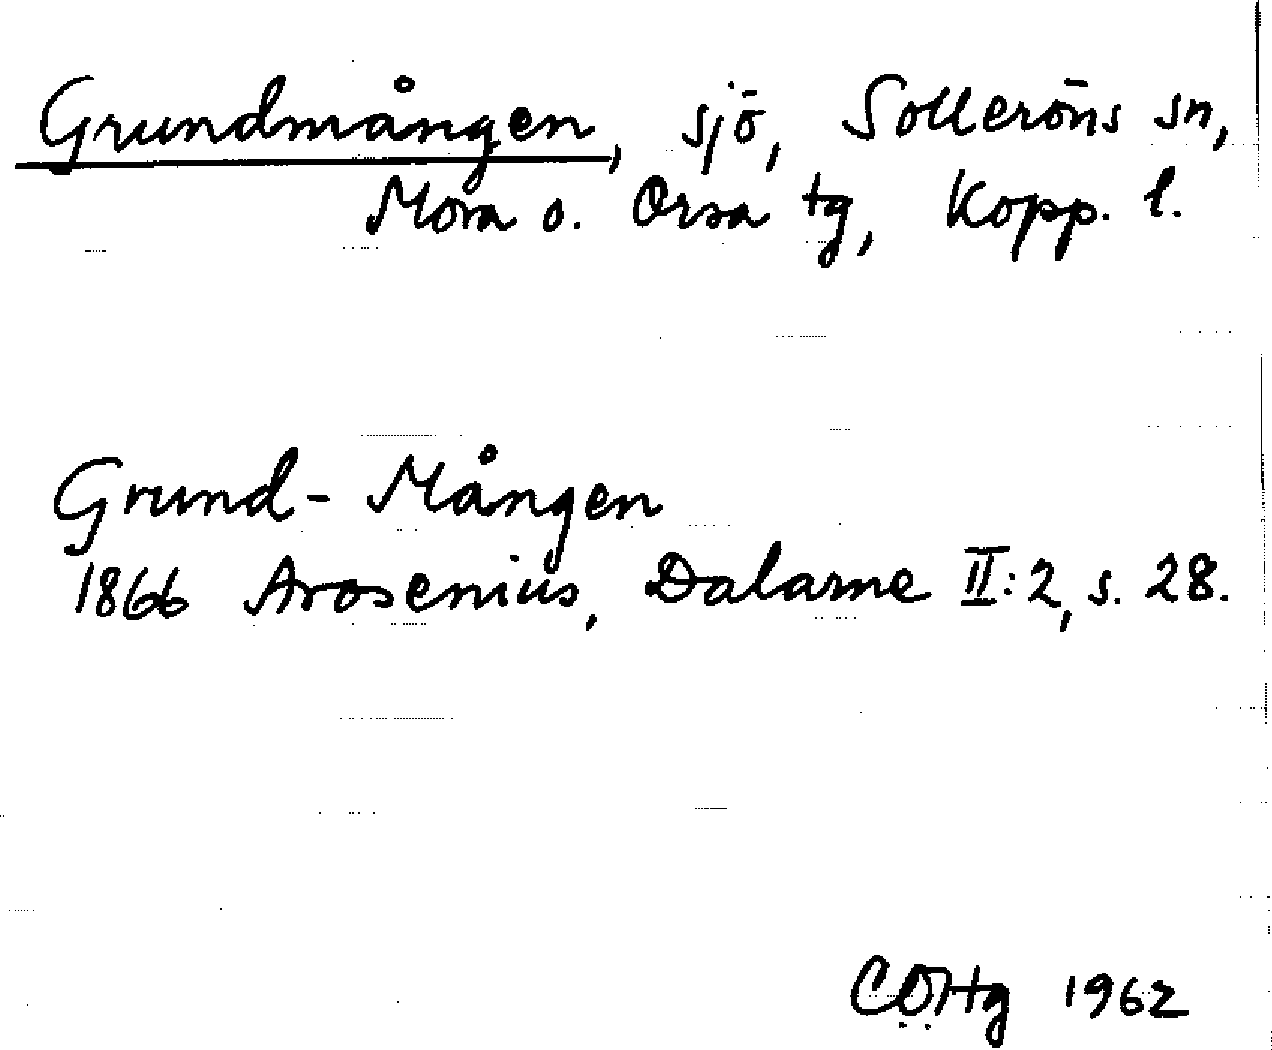 Grundmången, sjö, Solleröns sn,
Mora o. Orsa tg, Kopp. l.
Grund-Mången
1866 Arosenius, Dalarne II:2, s. 28.
COHg 1962